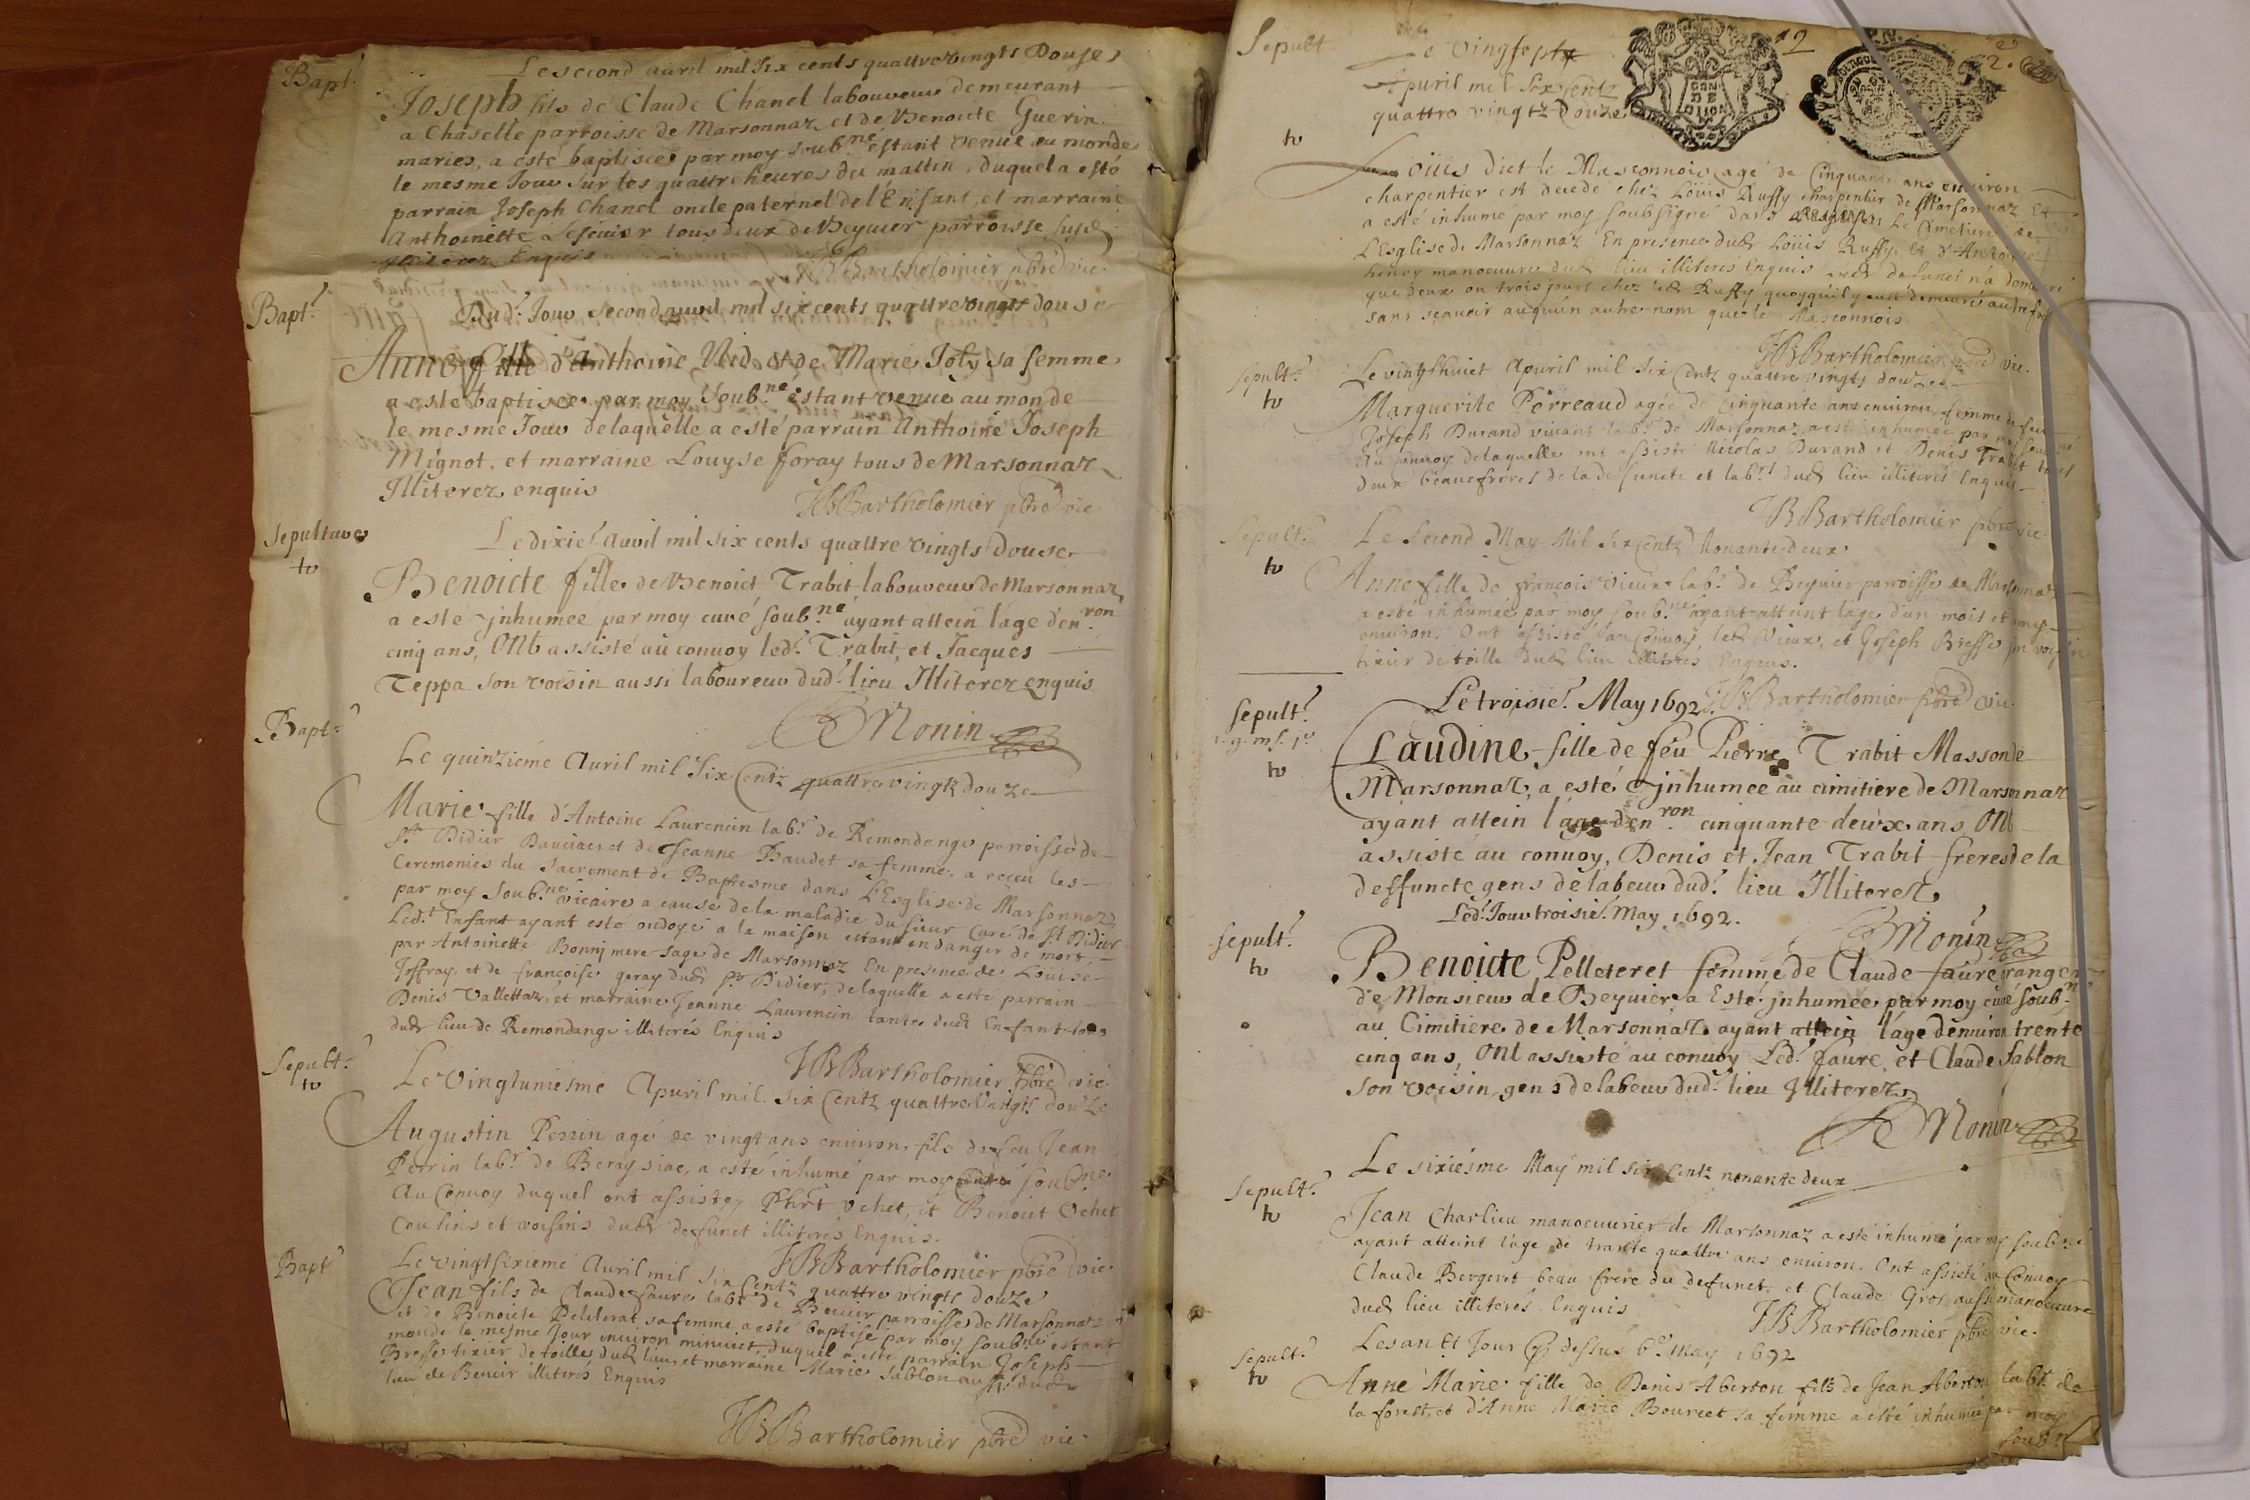 Bapt.
Le second auril mil six cents quattre vingts Douse
Joseph fils de Claude Chanel laboureur demeurant
a Chaselle parroisse de Marsonnaz et de Benoicte Guerin
maries, a esté baptisée par moy soub.né estant venue au monde
le mesme Jour sur les quattre heures du mattin, duquel a esté
parrain Joseph Chanel oncle paternel de l'Enfant, et marraine
Anthoinette tous deux de Beyuier parroisse
Illiterez Enquis
JBBartholomier pbre vic.
Bapt.
Dud. Jour second auril mil six cents quattre vingts douse
Anne fille d'Anthoine et de Marie Joly sa femme
a esté baptisee par moy soub.né estant venue au monde
le mesme Jour de laquelle a esté parrain Anthoine Joseph
Mignot, et marraine Louyse foray tous de Marsonnaz
Illiterez enquis
JBBartholomier pbre vic
Sepulture
tv
Le dixie. Auril mil six cents quattre vingts Douse
Benoicte fille de Benoict Trabit laboureur de Marsonnaz
a esté jnhumée par moy curé soub.né ayant attein l'age d'en.ron
cinq ans, Ont assisté au conuoy led. Trabit, et Jacques
Teppa son voisin aussi laboureur dud. lieu Illiterez enquis
Monin
Bapt.
Le quinzieme Auril mil Six Centz quattre vingtz douze
Marie fille d'Antoine Laurencin lab.r de Remondange parroisse de
St Didier et de Jeanne Baudet sa femme a receu les
Ceremonies du Sacrement de Baptesme dans L'Eglise de Marsonnaz
par moy soub.né vicaire a cause de la maladie du sieur Curé de St Didier
Led.t Enfant ayant esté ondoyé a la maison estant en danger de mort
par Antoinette Bonnj mere sage de Marsonnaz En presence de Louise
Joffray, et de françoise geray dud St Didier, de laquelle a esté parrain
Denis Vallettaz, et marraine Jeanne Laurencin tante dud Enfant tous
dud lieu de Remondange illiterés Enquis
JBBartholomier pbre vic
Sepult.
tv
Le Vingtuniesme Apuril mil six Centz quattre Vingts douze
Augustin Perrin agé de vingt ans enuiron, fils de feu Jean
Perrin lab.r de Beraysiac, a esté inhumé par moy soub.né
Au Conuoy duquel ont assistez Vchet, et Benoict Vchet
Cousins et voisins dud defunct illiterés Enquis.
JBBartholomier pbre vic
Bapt
Le vingtsixieme Auril mil Six Centz quattre vingts douze
Jean fils de Claude faure lab.r de Beuier parroisse de Marsonnaz
et de Benoicte Peleterat sa femme a esté baptisé par moy soub.né estant
monde le mesme Jour enuiron minuict duquel a esté parrain Joseph
Bresse tixier de toilles dud lieu, et marraine Marie Sablon aussi dud
lieu de Beuier illiterés Enquis
JBBartholomier pbre vic.
Sepult
tv
Le Vingsept
Apuril mil Six Centz
quattre vingtz Douze
12
GEN
DE
DIION
Loüis dict le Masconnois agé de Cinquante ans enuiron
charpentier est decedé chez Loüis Ruffy charpentier de Marsonnaz Et
a esté inhumé par moy soubsigné dans le Cimetiere de
L'Esglise de Marsonnaz En presence dud Loüis Ruffy, et d'Antoine
henry manoeuure dud lieu illiterés Enquis led defunct n'a demeuré
que deux ou trois jours chez led Ruffy quoyqu'il y eut demeuré autrefois
sans sçauoir auquun autre nom que le Masconnois
JBBartholomier pbre vic.
Sepult.
tv
Le vingthuict Apuril mil Six Centz quattre vingts douze
Marguerite Porreaud agée de Cinquante ans enuiron, femme de feu
Joseph Durand viuant lab.r de Marsonnaz a esté inhumée par moy soub.né
Au conuoy de laquelle ont assisté Nicolas Durand et Denis Trabit tous
deux beaufreres de la defuncte et lab.rs dud lieu illiterés Enquis
JBBartholomier pbre vic
Sepult.
tv
Le Second May Mil Six Centz Nonante deux
Anne fille de françois Vieux lab.r de Beyuier parroisse de Marsonnaz
a esté inhumée par moy soub.né ayant atteint l'age d'un mois et my
enuiron. Ont assisté Au Conuoy led Vieux, et Joseph Bresse son voisin
tixier de toille dud lieu illiterés Enquis.
JBBartholomier pbre vic.
Sepult.
tv
Le troisie. May 1692
Claudine fille de feu Pierre Trabit Masson de
Marsonnaz, a esté jnhumee au cimitiere de Marsonnaz
ayant attein l'age d'en.ron cinquante deux ans Ont
assisté au conuoy, Denis et Jean Trabit freres de la
deffuncte gens de labeur dud. lieu Illiterez
Monin
Sepult.
tv
Led. Jour troisie. May 1692.
Benoicte Pelleteret femme de Claude faure granger
de Monsieur de Beyuier a Esté jnhumée par moy curé soub.né
au Cimitiere de Marsonnaz ayant attein l'age d'enuiron trente
cinq ans, Ont assisté au conuoy Led. faure, et Claude Sablon
son voisin gens de labeur dud. lieu Illiterez
Monin
Sepult.
tv
Le sixiesme May mil six Centz nonante deux
Jean Charlieu manoeuurier de Marsonnaz a esté inhumé par moy soub.né
ayant atteint l'age de trante quattre ans enuiron. Ont assisté au Conuoy
Claude Bergeret beau frere du defunct, et Claude Gros aussi manoeuure
dud lieu illiterés Enquis
JBBartholomier pbre vic.
Sepult.
tv
Les an Et Jour Cy dessus 6.e may 1692
Anne Marie fille de Denis Aberton fils de Jean Aberton lab.r de
la forest, et d'Anne Marie Bouruet sa femme a esté inhumée par moy
soub.né